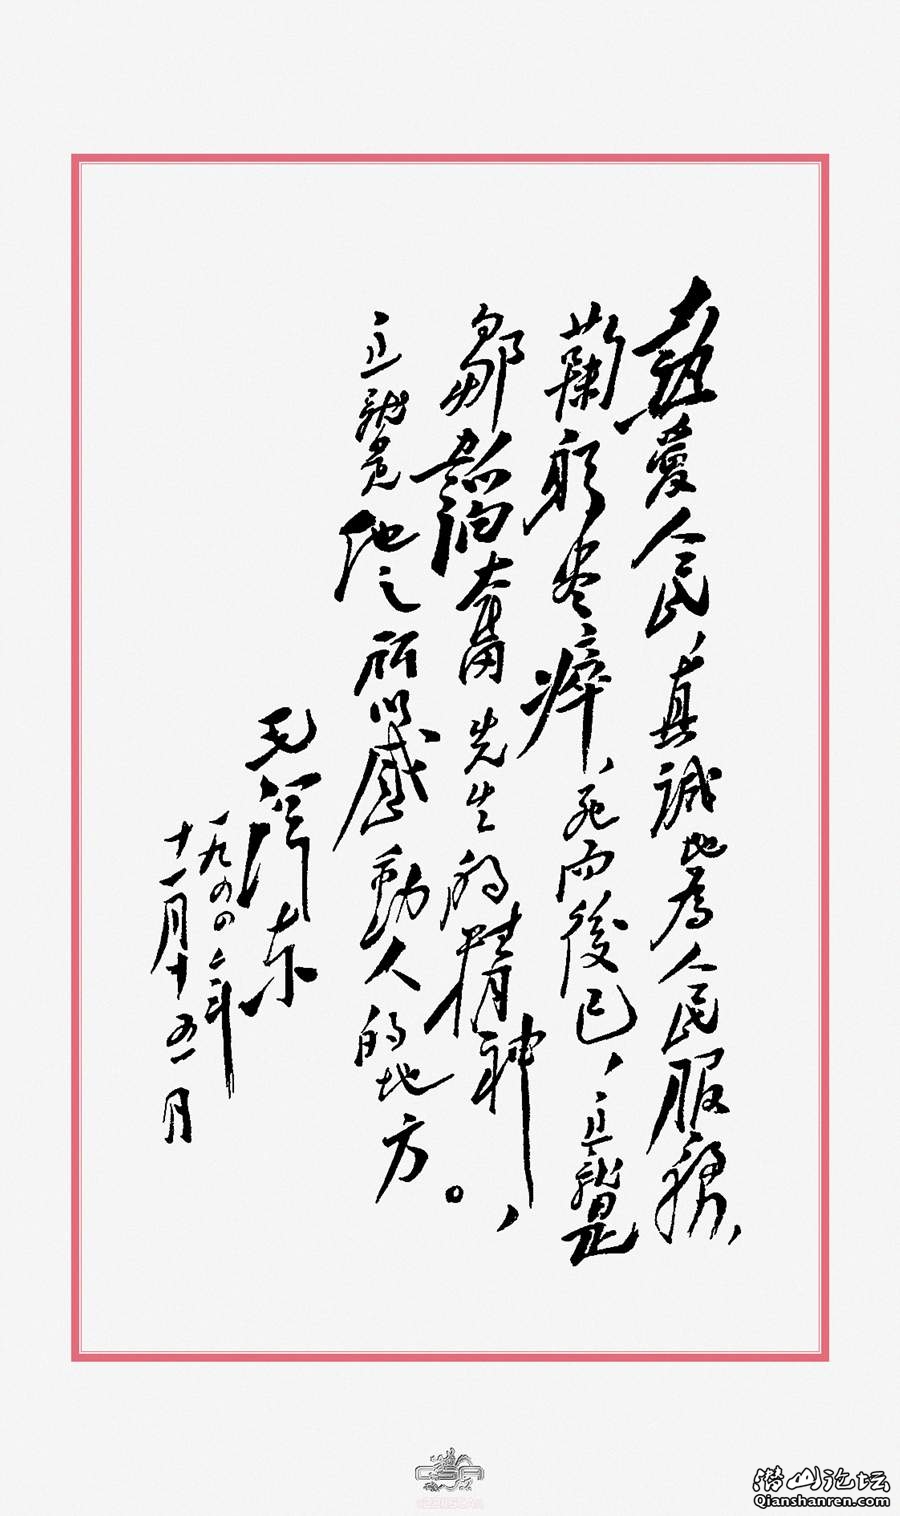 熱愛人民，真誠地為人民服務，
鞠躬尽瘁，死而後已，这就是
鄒韜奮先生的精神，
这就是他之所以感動人的地方。
毛泽东
一九四四年
十一月十五日
潜山论坛
Qianshanren.com